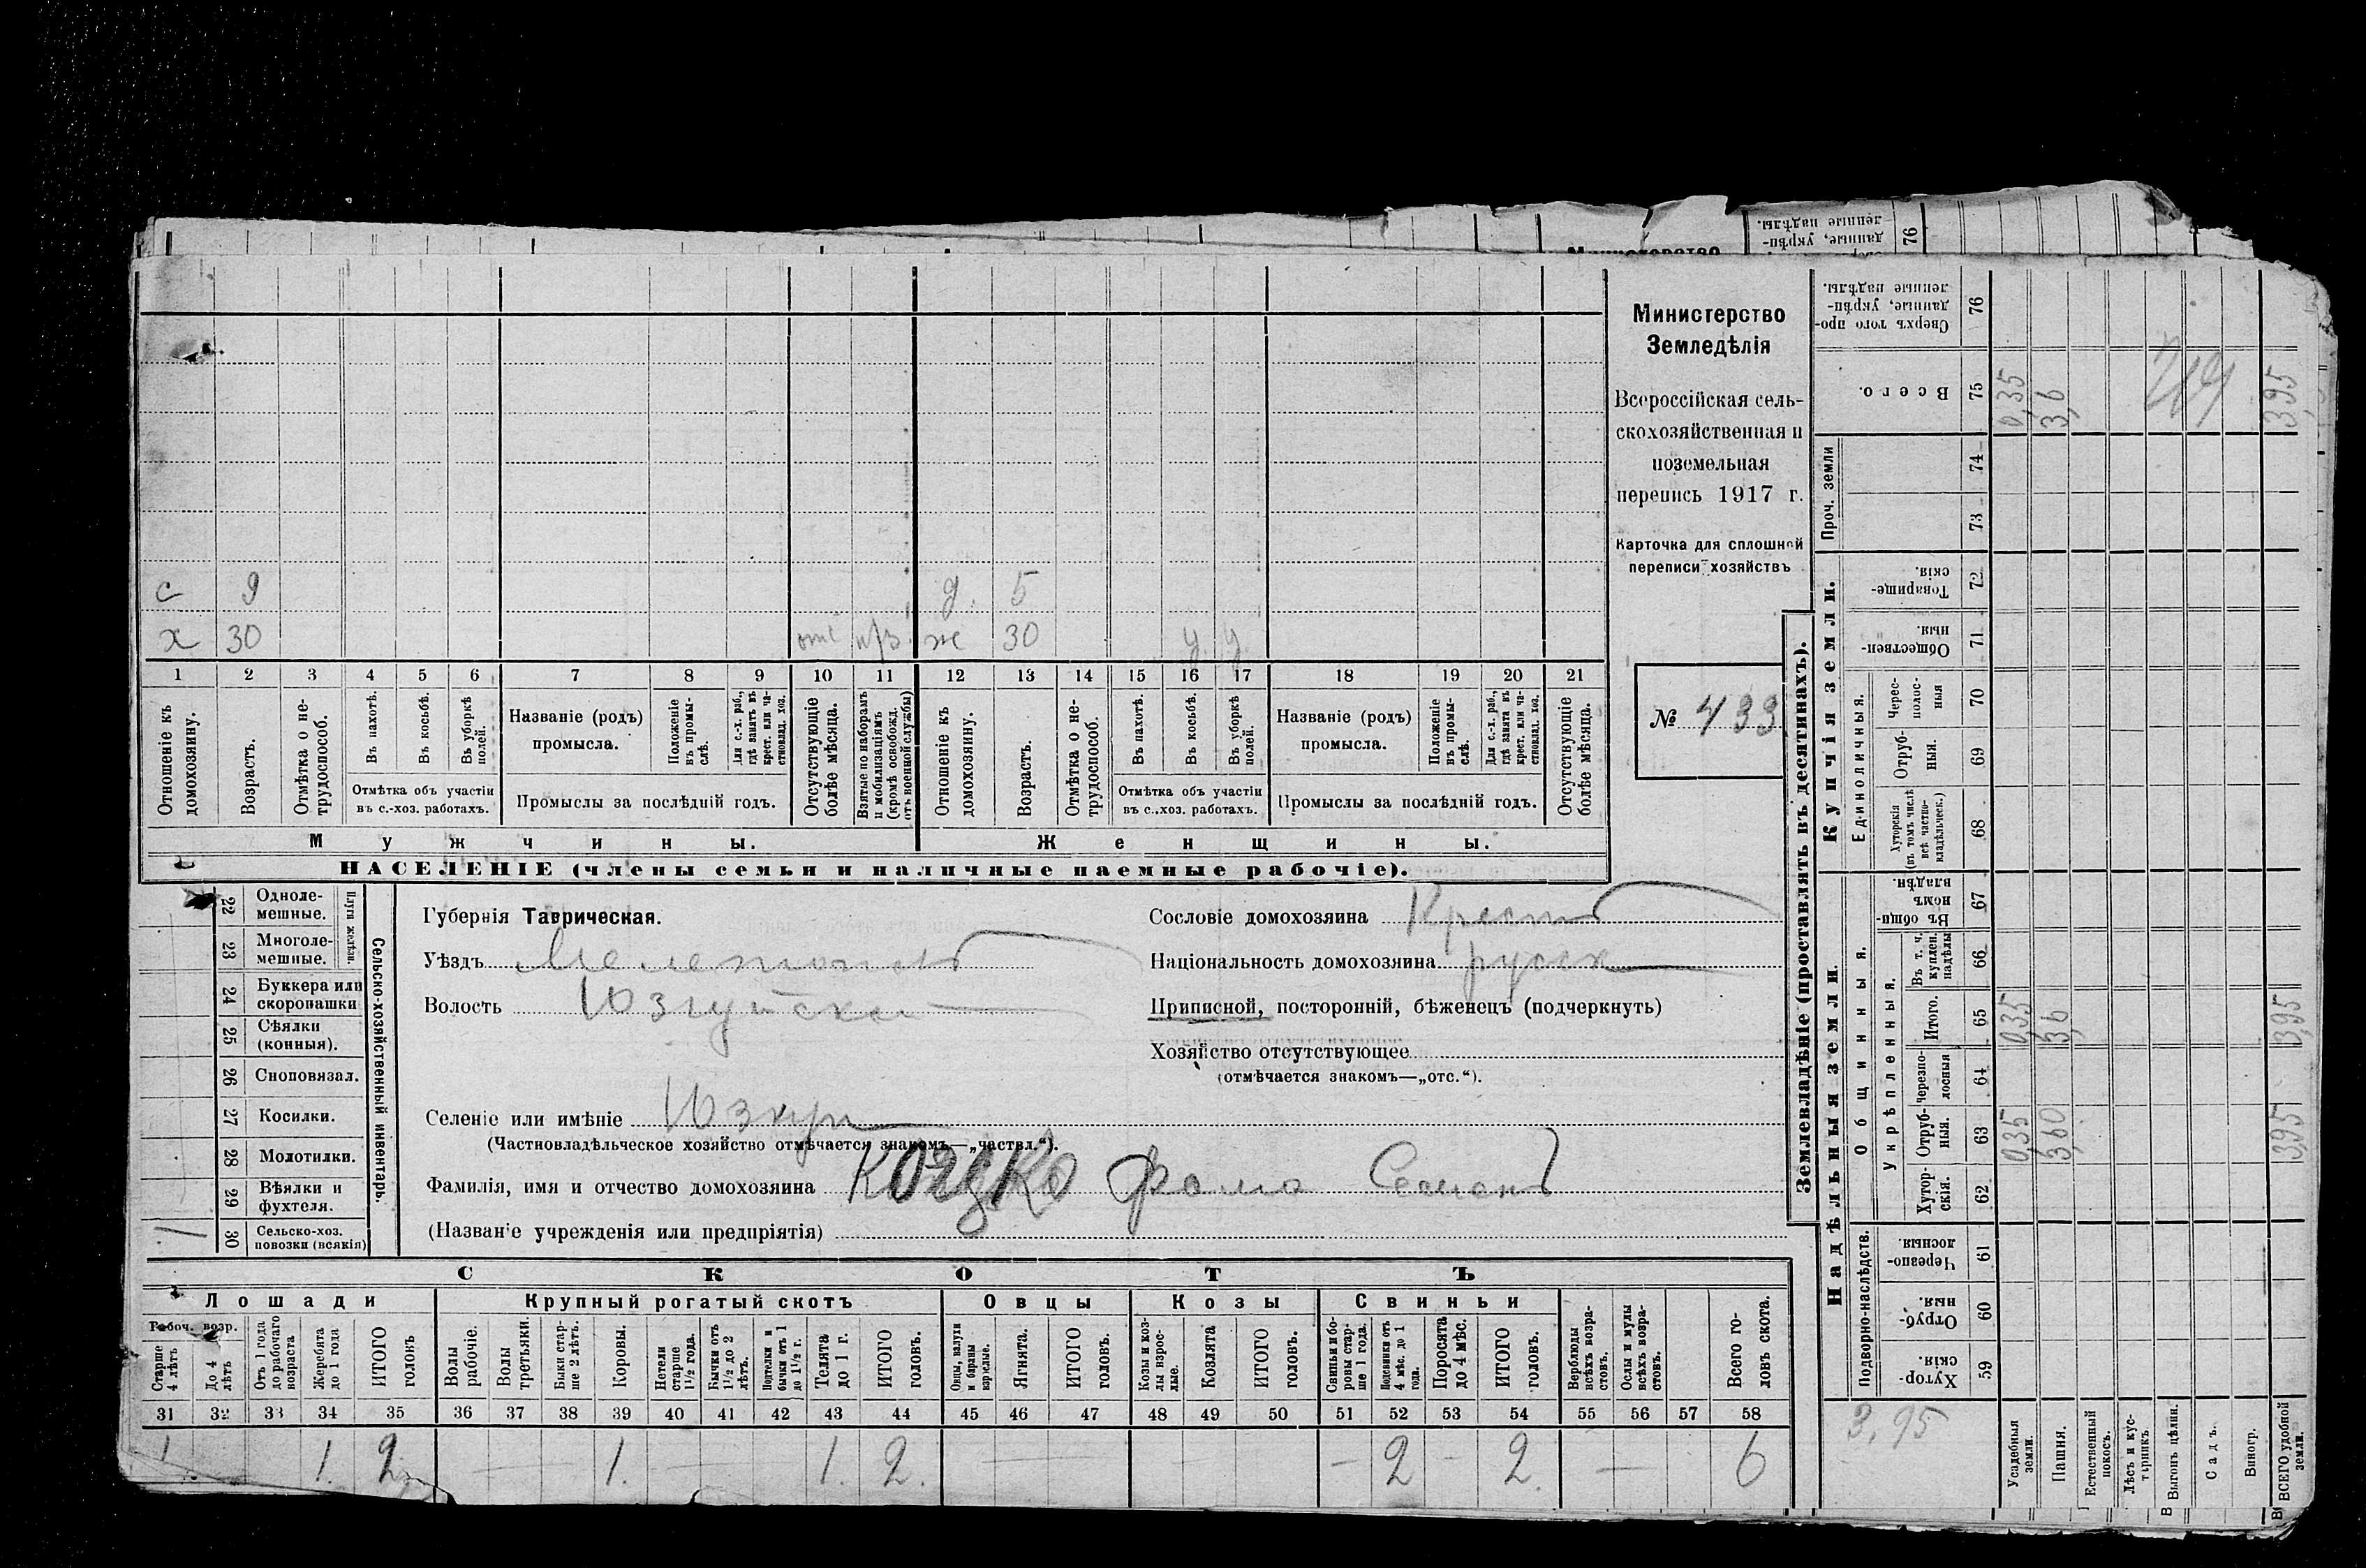 Министерство
Земледѣлія
Всероссійская сель-
скохозяйственная и
поземельная
перепись 1917 г.
Карточка для сплошной
переписи хозяйствъ
№ 433
с 9 д. 5
х 30 отс ж 30 у у
1 2 3 4 5 6 7 8 9 10 11 12 13 14 15 16 17 18 19 20 21
Отношеніе къ домохозяину.
Возрастъ.
Отмѣтка о не-трудоспособ.
Въ пахотѣ.
Въ косьбѣ.
Въ уборкѣ полей.
Отмѣтка объ участіи
въ с.-хоз. работахъ.
Названіе (родъ)
промысла.
Положеніе въ промы-слѣ.
Для с.-х. раб., гдѣ занятъ въ крест. или ча-стновлад. хоз.
Промыслы за послѣдній годъ.
Отсутствующіе болѣе мѣсяца.
Взятые по наборамъ и мобилизаціямъ (кромѣ освобожд. отъ военной службы)
Отношеніе къ домохозяину.
Возрастъ.
Отмѣтка о не-трудоспособ.
Въ пахотѣ.
Въ косьбѣ.
Въ уборкѣ полей.
Отмѣтка объ участіи
въ с.-хоз. работахъ.
Названіе (родъ)
промысла.
Положеніе въ промы-слѣ.
Для с.-х. раб., гдѣ занята въ крест. или ча-стновлад. хоз.
Промыслы за послѣдній годъ.
Отсутствующіе болѣе мѣсяца.
Мужчины. Женщины.
НАСЕЛЕНІЕ (члены семьи и наличные наемные рабочіе).
Сельско-хозяйственный инвентарь.
Плуги желѣзн.
22 Одноле-мешные.
23 Многоле-мешные.
24 Буккера или скоропашки
25 Сѣялки (конныя).
26 Сноповязал.
27 Косилки.
28 Молотилки.
29 Вѣялки и фухтеля.
1 30 Сельско-хоз. повозки (всякія)
Губернія Таврическая.
Уѣздъ Мелетопольс
Волость Юзкуйска
Селеніе или имѣніе Юзкуи
(Частновладѣльческое хозяйство отмѣчается знакомъ—„частвл.“).
Фамилія, имя и отчество домохозяина Фома Семенъ
(Названіе учрежденія или предпріятія)
Сословіе домохозяина Крест
Національность домохозяина русск
Приписной, посторонній, бѣженецъ (подчеркнуть)
Хозяйство отсутствующее
(отмѣчается знакомъ—„отс.“).
СКОТЪ
Лошади Крупный рогатый скотъ Овцы Козы Свиньи
Рабоч. возр.
Старше 4 лѣтъ
До 4 лѣтъ
Отъ 1 года до рабочаго возраста
Жеребята до 1 года
ИТОГО головъ
Волы рабочіе.
Волы третьяки.
Быки стар-ше 2 лѣтъ.
Коровы.
Нетели старше 1½ года.
Бычки отъ 1½ до 2 лѣтъ.
Подтелки и бычки отъ 1 до 1½ г.
Телята до 1 г.
ИТОГО головъ.
Овцы, валухи и бараны взрослые.
Ягнята.
ИТОГО головъ.
Козы и коз-лы взрос-лые.
Козлята
ИТОГО головъ.
Свиньи и бо-ровы стар-ше 1 года.
Подсвинки отъ 4 мѣс. до 1 года.
Поросята до 4 мѣс.
ИТОГО головъ.
Верблюды всѣхъ возра-стовъ.
Ослы и мулы всѣхъ возра-стовъ.
Всего го-ловъ скота.
31 32 33 34 35 36 37 38 39 40 41 42 43 44 45 46 47 48 49 50 51 52 53 54 55 56 57 58
1 1. 2 — 1. — 1. 2. — — — 2 - 2. — 6
Землевладѣніе (проставлять въ десятинахъ).
Надѣльныя земли. Купчія земли.
Подворно-наслѣдств.
Общинныя.
Укрѣпленныя.
Единоличныя.
Проч. земли
Хутор-скія. 59
Отруб-ныя. 60
Черезпо-лосныя. 61
Хутор-скія. 62
Отруб-ныя. 63 0,35 3,60 3,95
черезпо-лосныя 64
Итого. 65 0,35 3,6 3,95
Въ т. ч. куплен. надѣлы 66
Въ общи-номъ владѣн. 67
Хуторскія (въ томъ числѣ всѣ частно-владѣльческ.) 68
Отруб-ныя. 69
Черес-полос-ныя 70
Обществен-ныя. 71
Товарище-скія. 72
73
74
Всего. 75 0,35 3,6 3,95
Сверхъ того про-данные, укрѣп-ленные надѣлы. 76
3,95
Усадебныя земли.
Пашня.
Естественный покосъ.
Лѣсъ и кус-тарникъ.
Выгонъ цѣлин.
Садъ.
Виногр.
ВСЕГО удобной земли.